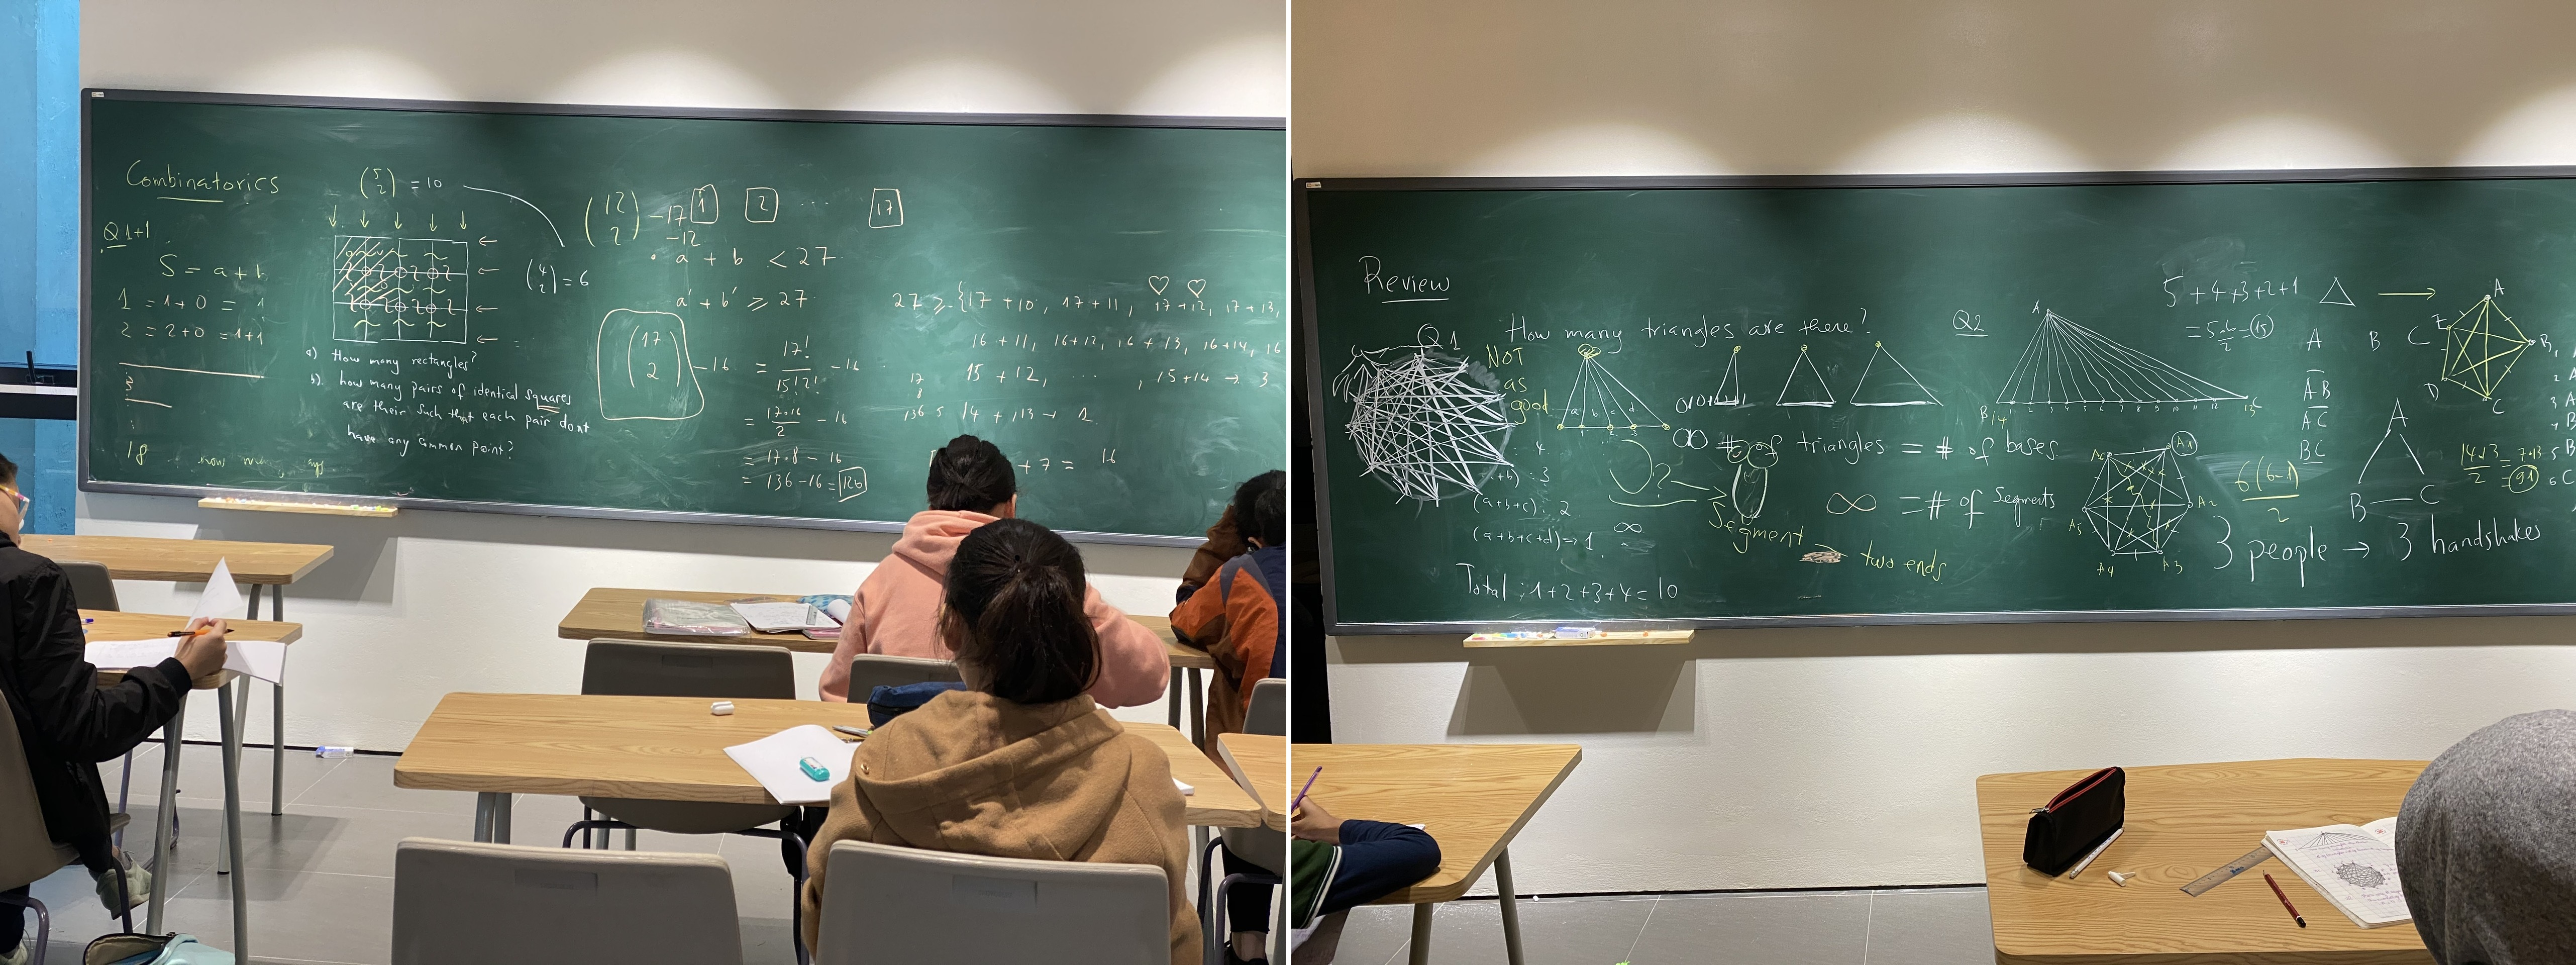 Combinatorics
Q1+1
S = a + b
1 = 1+0 = 1
2 = 2+0 = 1+1
18
(5 2) = 10
(4 2) = 6
a) How many rectangles?
b) how many pairs of identical squares
are their such that each pair dont
have any common point?
(12 2) - 17 1 2 ... 17
-12
a + b < 27
a' + b' ≥ 27
(17 2) - 16 = 17!/15!2! - 16
= 17.16/2 - 16
= 17.8 - 16
= 136 - 16 = 120
27 ≥ {17 + 10, 17 + 11, 17 + 12, 17 + 13,
16 + 11, 16+12, 16 + 13, 16+14, 16
15 + 12, ... , 15+14 → 3
17
8
136
14 + 13 → 1
+ 7 = 16
Review
Q1 How many triangles are there?
NOT
as
good
a b c d
1 2 3
: 4
+b) : 3
(a+b+c) : 2
(a+b+c+d) → 1
∞
Total : 1+2+3+4 = 10
# of triangles = # of bases
∞ = # of Segments
? → Segment → two ends
Q2
A
B 1 2 3 4 5 6 7 8 9 10 11 12 13 C
14
5 + 4 + 3 + 2 + 1
= 5.6/2 = 15
A B C
AB
AC
BC
A B C D E
A1
A2
A3
A4
A5
A6
6(6-1)/2
A
B — C
14.13/2 = 7.13
= 91
3 people → 3 handshakes